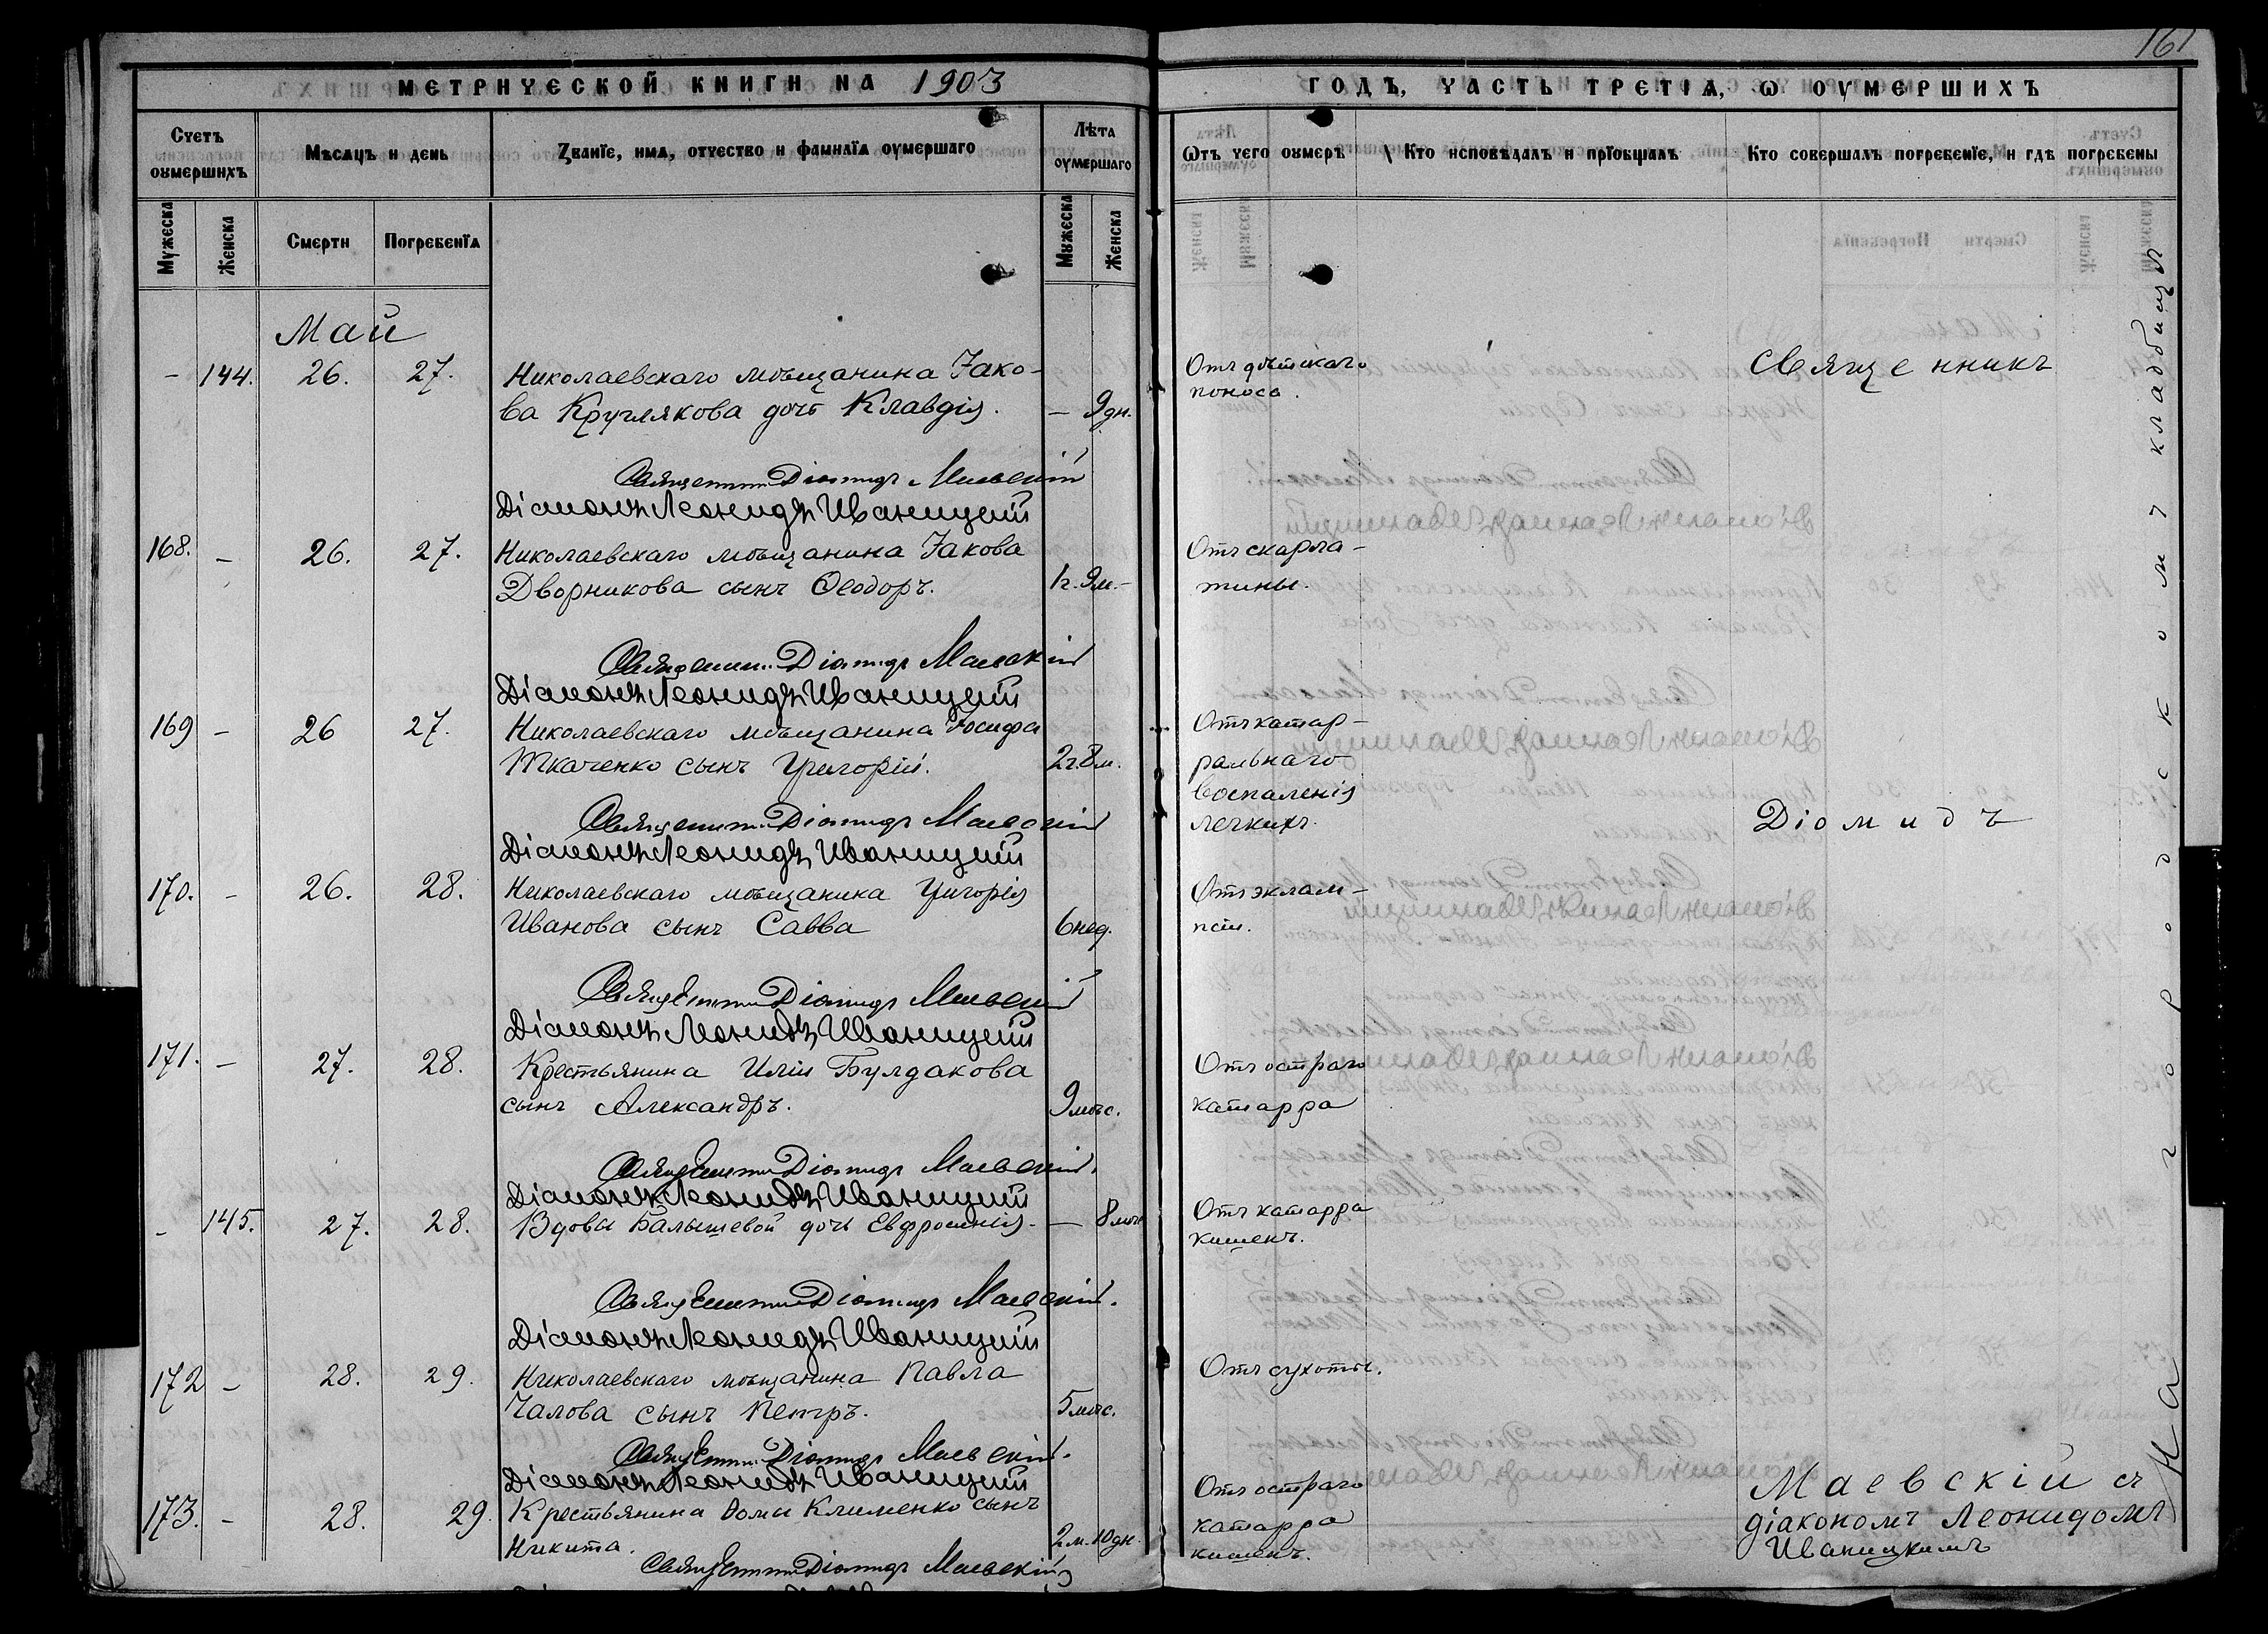 161
МЕТРИЧЕСКОЙ КНИГИ НА 1903
ГОДЪ, ЧАСТЬ ТРЕТІѦ, Ѡ ОУМЕРШИХЪ
Счетъ оумершихъ
Мѣсѧцъ и день
Званїе, имѧ, отчество и фамилїѧ оумершаго
Лѣта оумершаго
Ѿтъ чего оумеръ
Кто исповѣдалъ и прїобщалъ
Кто совершалъ погребенїе, и гдѣ погребены
Мужеска
Женска
Смерти
Погребенїѧ
Мужеска
Женска
Май
- 144. 26. 27. Николаевскаго мѣщанина Іако-
ва Круглякова дочь Клавдія. — 9 дн.
Отъ дѣтскаго
поноса.
Священникъ
Священникъ Діомидъ Маевскій
Діаконъ Леонидъ Иваницкій
168. - 26. 27. Николаевскаго мѣщанина Іакова
Дворникова сынъ Ѳеодоръ. 1г. 9м. -
Отъ скарла-
тины.
Священникъ Діомидъ Маевскій
Діаконъ Леонидъ Иваницкій
169 - 26 27. Николаевскаго мѣщанина Іосифа
Ткаченко сынъ Григорій. 2г. 8м.
Отъ катар-
ральнаго
воспаленія
легкихъ.
Діомидъ
Священникъ Діомидъ Маевскій
Діаконъ Леонидъ Иваницкій
170. - 26. 28. Николаевскаго мѣщанина Григорія
Иванова сынъ Савва 6 нед.
Отъ эклам-
псіи.
Священникъ Діомидъ Маевскій
Діаконъ Леонидъ Иваницкій
171. - 27. 28. Крестьянина Иліи Булдакова
сынъ Александръ. 9 мѣс.
Отъ остраго
катарра
Священникъ Діомидъ Маевскій.
Діаконъ Леонидъ Иваницкій
- 145. 27. 28. Вдовы Балышевой дочь Евфросинія. — 8 мѣс
Отъ катарра
кишекъ.
Священникъ Діомидъ Маевскій.
Діаконъ Леонидъ Иваницкій
172 - 28. 29. Николаевскаго мѣщанина Павла
Чалова сынъ Петръ. 5 мѣс.
Отъ сухоты.
Священникъ Діомидъ Маевскій.
Діаконъ Леонидъ Иваницкій
173. - 28. 29. Крестьянина Ѳомы Клименко сынъ
Никита. 2 м. 10 дн.
Отъ остраго
катарра
кишекъ.
Маевскій съ
діакономъ Леонидомъ
Иваницкимъ
Священникъ Діомидъ Маевскій
На городскомъ кладбищѣ